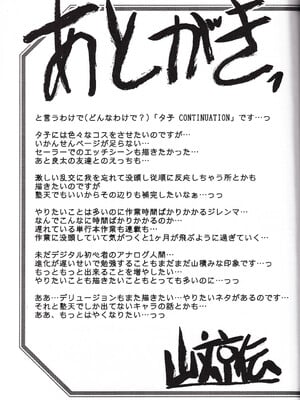 あとがき、
と言うわけで(どんなわけで？)「夕子 CONTINUATION」です…っ
夕子には色々なコスをさせたいのですが…
いかんせんページが足らない…
セーラーでのエッチシーンも描きたかった…
あと良太の友達とのえっちも…
激しい乱交に我を忘れて没頭し従順に反応しちゃう所とかも
描きたいのですが…
塾天でもいいからその辺りも補完したいなぁ…っっ
やりたいことは多いのに作業時間ばかりかかるジレンマ…
なんでこんなに時間ばかりかかるのか…
遅れている単行本作業も連載も…
作業に没頭していて気がつくと1ヶ月が飛ぶように過ぎていく…
未だデジタル初心者のアナログ人間…
進化が遅いせいで勉強することもまだまだ山積みな印象です…っ
もっともっと出来ることを増やしたい…
やりたいことも描きたいこともとっても多いのに…っっ
ああ…デリュージョンもまた描きたい…やりたいネタがあるのです…
それと塾天でしか出てないキャラの話とかも…
ああ、もっとはやくなりたい…っっ
山文京伝